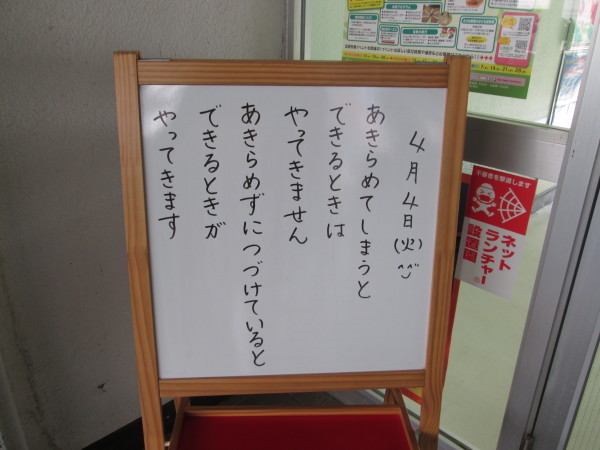 4月4日(火)^^
あきらめてしまうと
できるときは
やってきません
あきらめずにつづけていると
できるときが
やってきます
不審者を撃退します
ネット
ランチャー
設置園